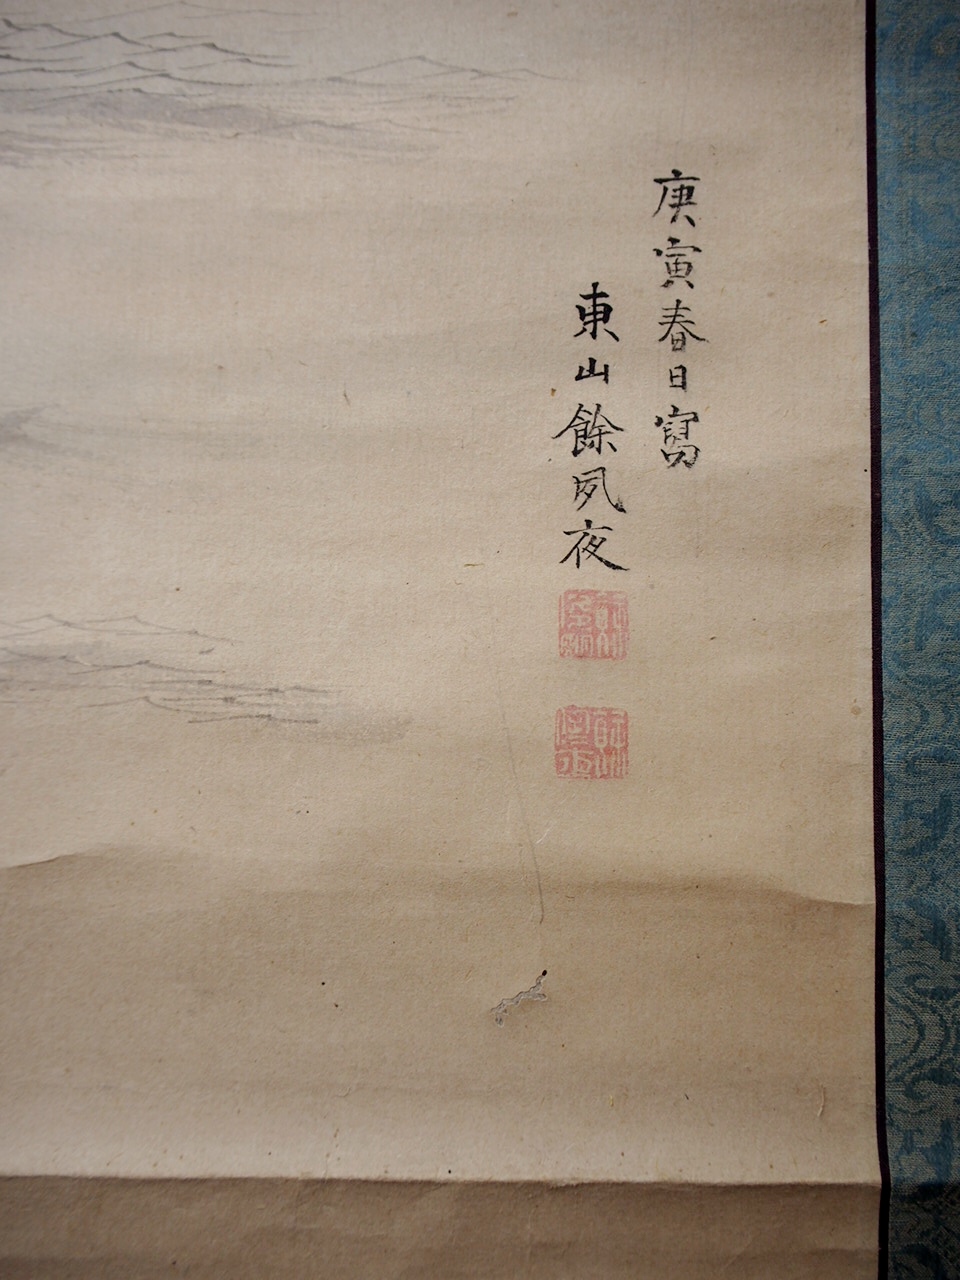 庚寅春日寫
東山餘夙夜